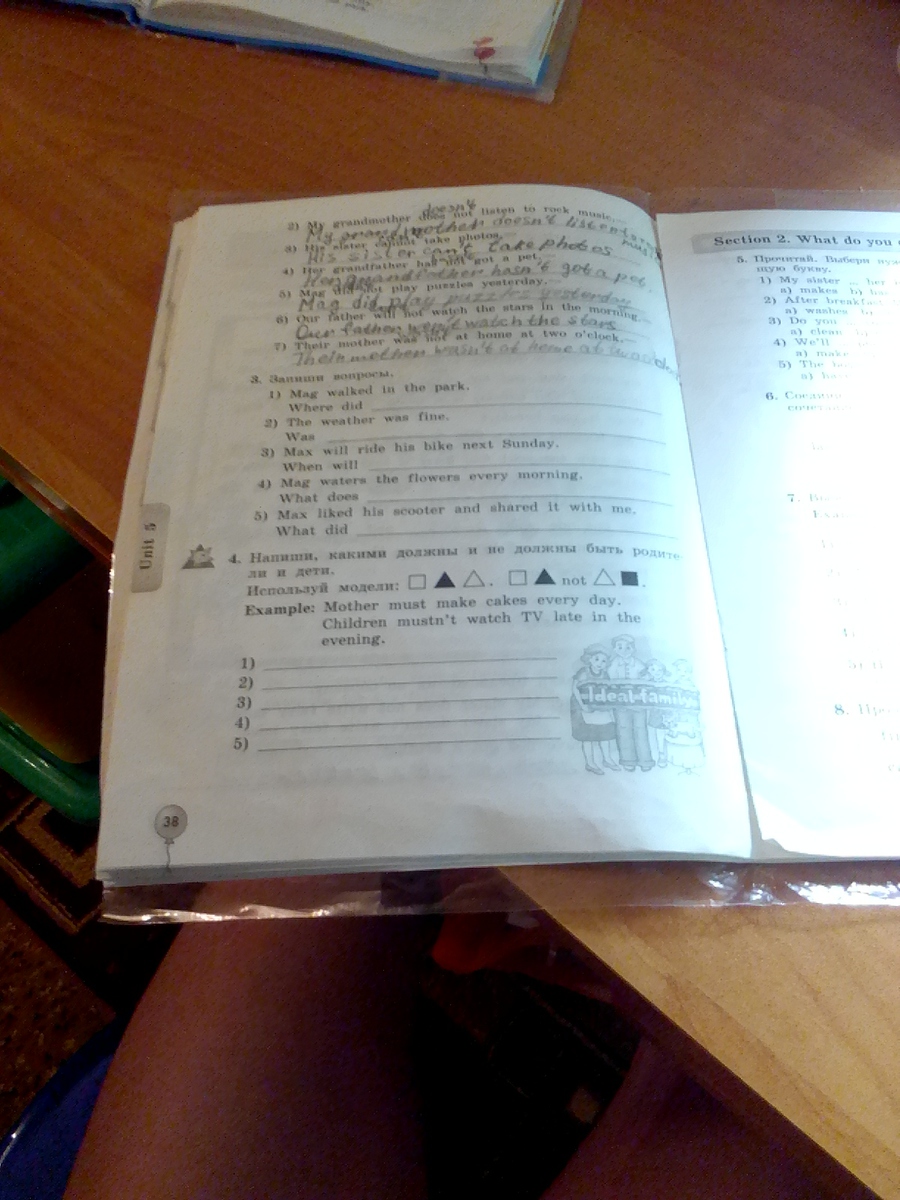 doesn't
2) My grandmother does not listen to rock music.
My grandmother doesn't listen
3) His sister cannot take photos.
His sister can't take photos
4) Her grandfather has not got a pet.
Her grandfather hasn't got a pet.
5) Mag did not play puzzles yesterday.
Mag did play puzzles yesterday
6) Our father will not watch the stars in the morning.
Our father won't watch the stars
7) Their mother was not at home at two o'clock.
Their mother wasn't at home at
3. Запиши вопросы.
1) Mag walked in the park.
Where did
2) The weather was fine.
Was
3) Max will ride his bike next Sunday.
When will
4) Mag waters the flowers every morning.
What does
5) Max liked his scooter and shared it with me.
What did
Unit 5
4. Напиши, какими должны и не должны быть родите-
ли и дети.
Используй модели: □ ▲ △. □ ▲ not △ ■.
Example: Mother must make cakes every day.
Children mustn't watch TV late in the
evening.
1)
2)
3)
4)
5)
Ideal family
38
Section 2. What do you
5. Прочитай. Выбери
щую букву.
1) My sister ... her
a) makes b)
2) After
a) washes
3) Do you
a) clean
4) We'll
a) make
5) The
a)
6.
7.
8.